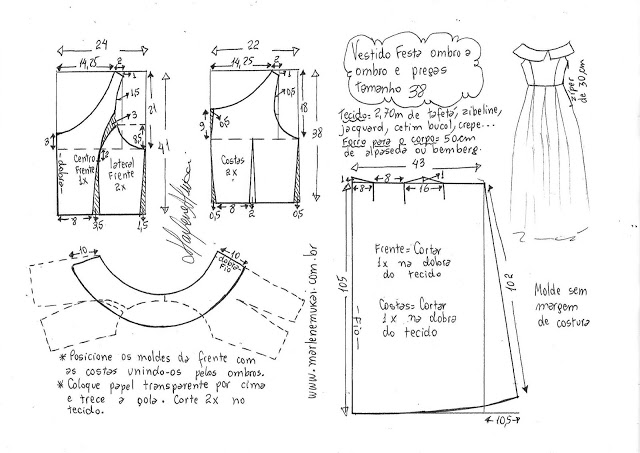 Vestido Festa ombro a
ombro e pregas
tamanho 38
Tecido: 2,70m de tafetá, zibeline,
jacquard, cetim bucol, crepe...
Forro para o corpo: 50cm
de alpaseda ou bemberg.
zíper
de 30cm
24
14,25
2
1
1,5
3
21
41
3
8,5
2
-dobra-
Centro
frente
1x
lateral
Frente
2x
8
3,5
1,5
22
14,25
2
1
0,5
18
38
9
0,5
Costas
2x
0,5
8
2
0,5
10
10
dobra
fio
* Posicione os moldes da frente com
as costas unindo-os pelos ombros.
* Coloque papel transparente por cima
e trece a gola. Corte 2x no
tecido.
www.marlenemukai.com.br
43
1
8
8
16
1
105
102
Frente = Cortar
1x na dobra
do tecido
Costas = Cortar
1x na dobra
do tecido
-Fio-
10,5
Molde sem
margem
de costura